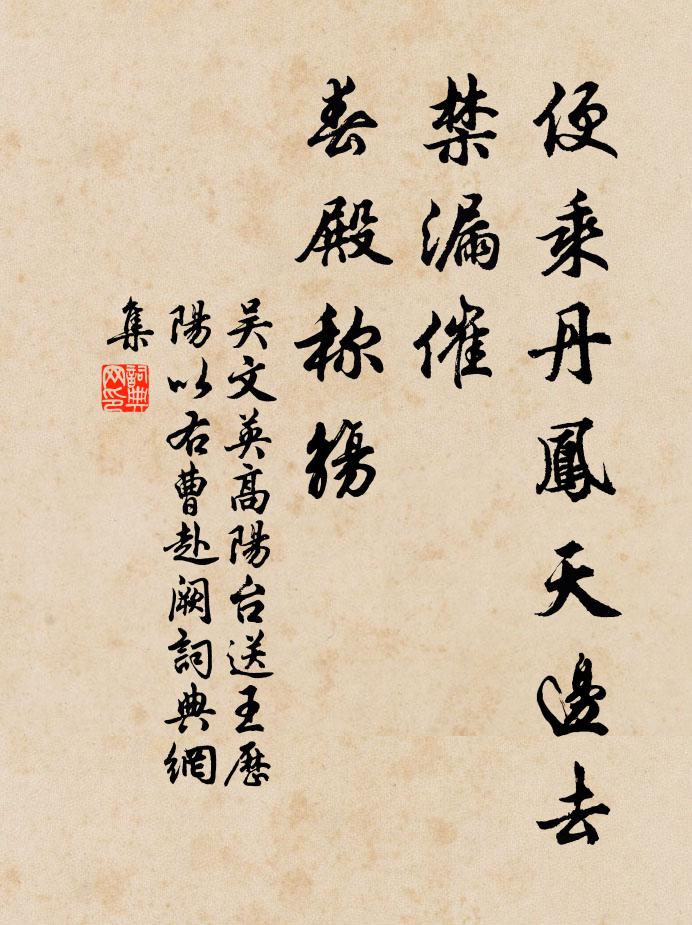 便乘丹鳳天邊去
禁漏催
春殿称觴
吴文英高陽台送王歷
陽以右曹赴阙詞典網
集
詞典
网印